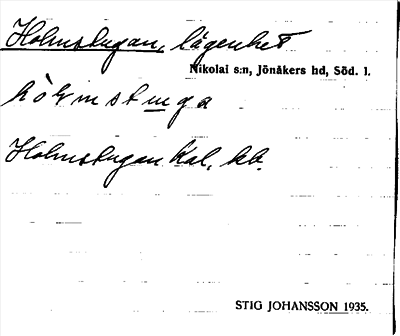 Holmstugan, lägenhet
Nikolai s:n, Jönåkers hd, Söd. l.
hòlmstuga
Holmstugan Kal. kb.
STIG JOHANSSON 1935.